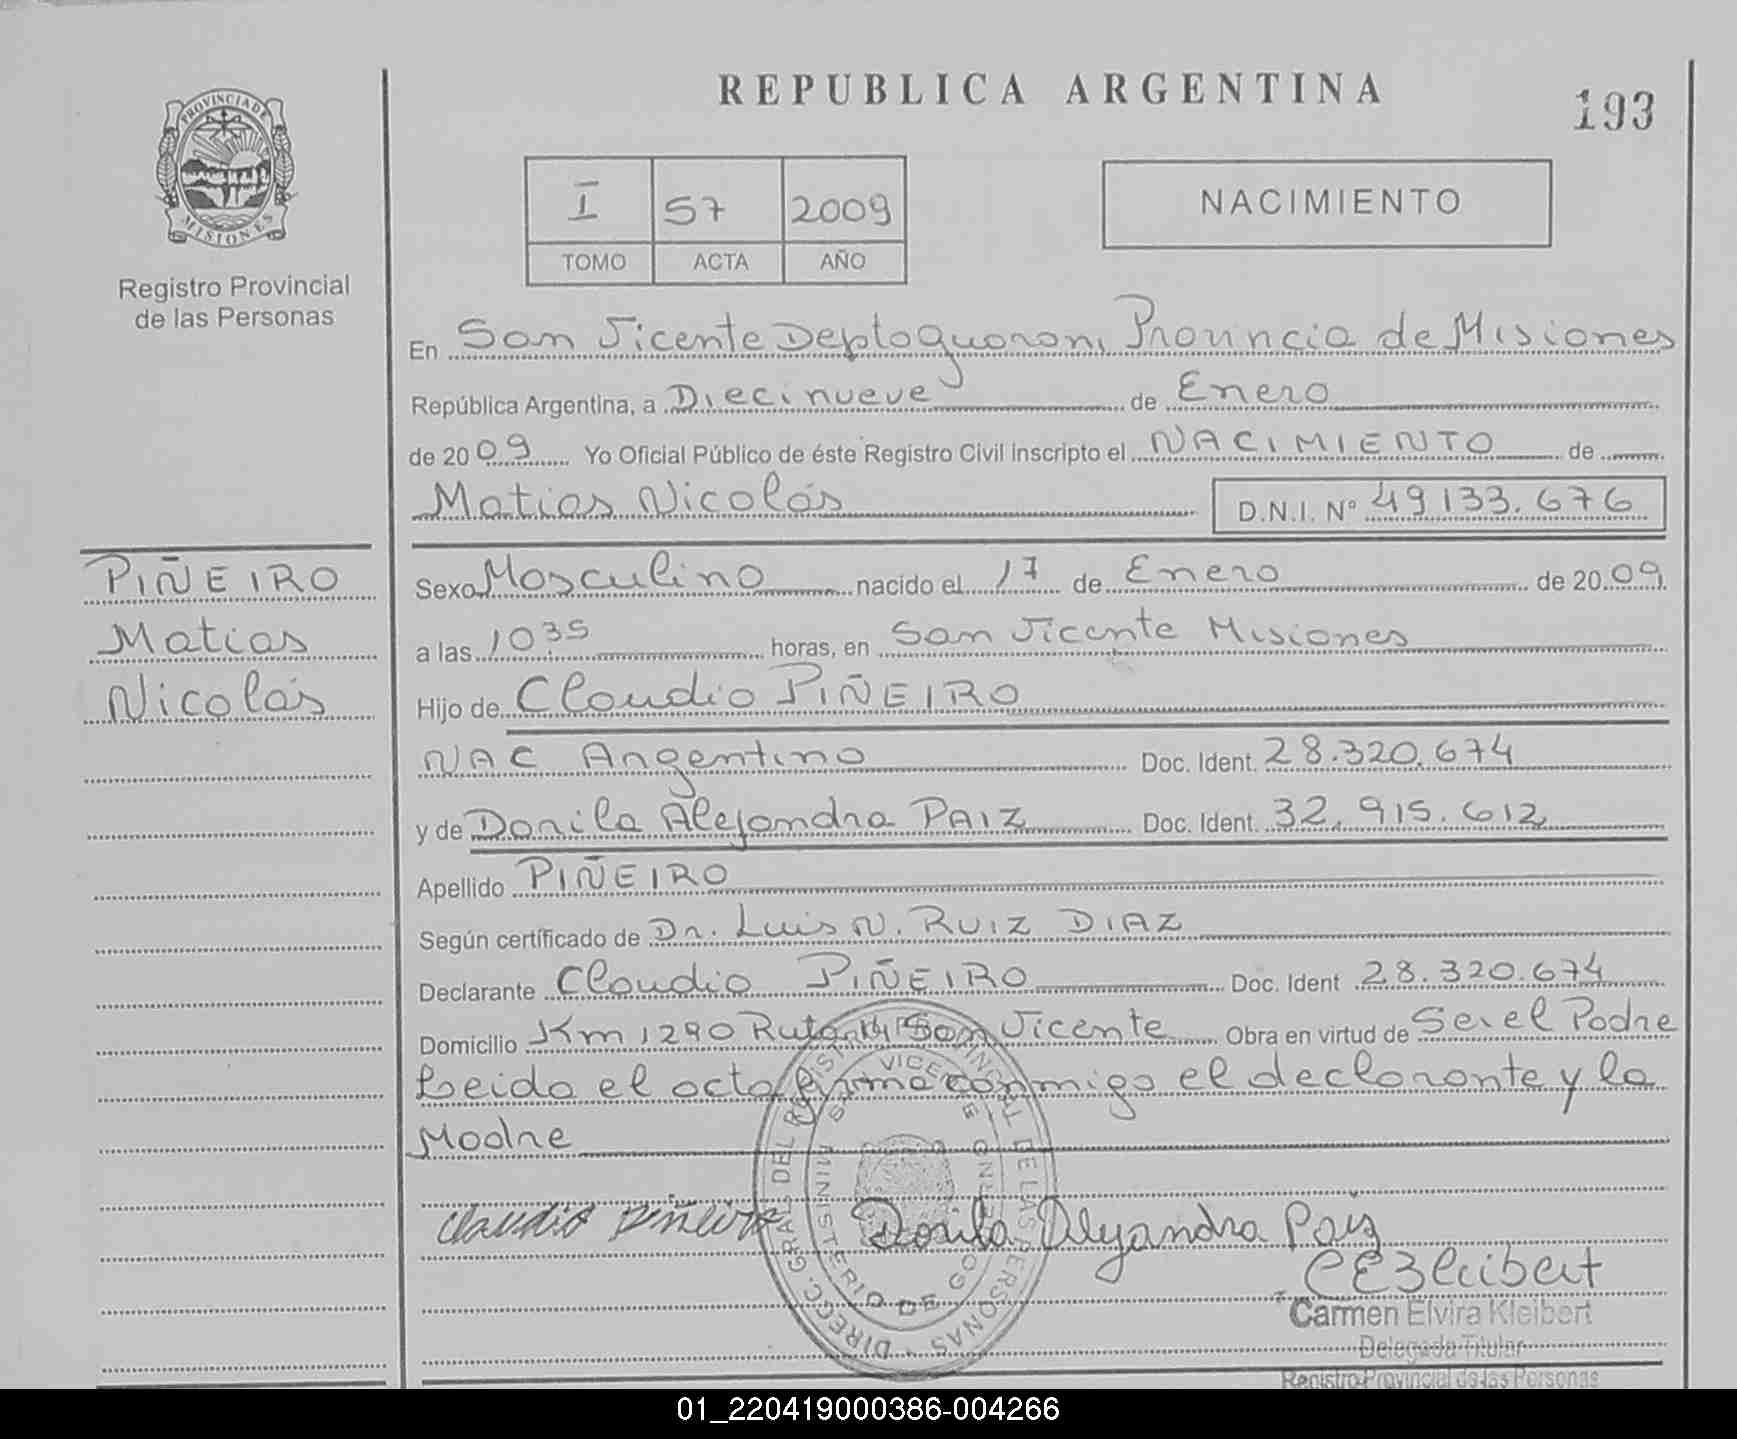 REPUBLICA ARGENTINA
193
PROVINCIA DE
MISIONES
Registro Provincial
de las Personas
I 57 2009
TOMO ACTA AÑO
NACIMIENTO
En San Vicente Depto Guarani Provincia de Misiones
República Argentina, a Diecinueve de Enero
de 2009 Yo Oficial Público de éste Registro Civil Inscripto el NACIMIENTO de
Matias Nicolás D.N.I. Nº 49133.676
PIÑEIRO
Matias
Nicolás
Sexo Masculino nacido el 17 de Enero de 2009
a las 1035 horas, en San Vicente Misiones
Hijo de Claudio PIÑEIRO
NAC Argentino Doc. Ident. 28.320.674
y de Dorila Alejandra PAIZ Doc. Ident. 32.915.612
Apellido PIÑEIRO
Según certificado de Dr. Luis N. RUIZ DIAZ
Declarante Claudio PIÑEIRO Doc. Ident 28.320.674
Domicilio Km 1290 Ruta 14 San Vicente Obra en virtud de Ser el Padre
Leida el acta firma conmigo el declarante y la
Madre
DIRECC. GRAL. DEL REGISTRO PROVINCIAL DE LAS PERSONAS
MINISTERIO DE GOBIERNO
SAN VICENTE
Claudio Piñeiro Dorila Alejandra Paiz
CEKleibert
Carmen Elvira Kleibert
Delegada Titular
Registro Provincial de las Personas
01_220419000386-004266